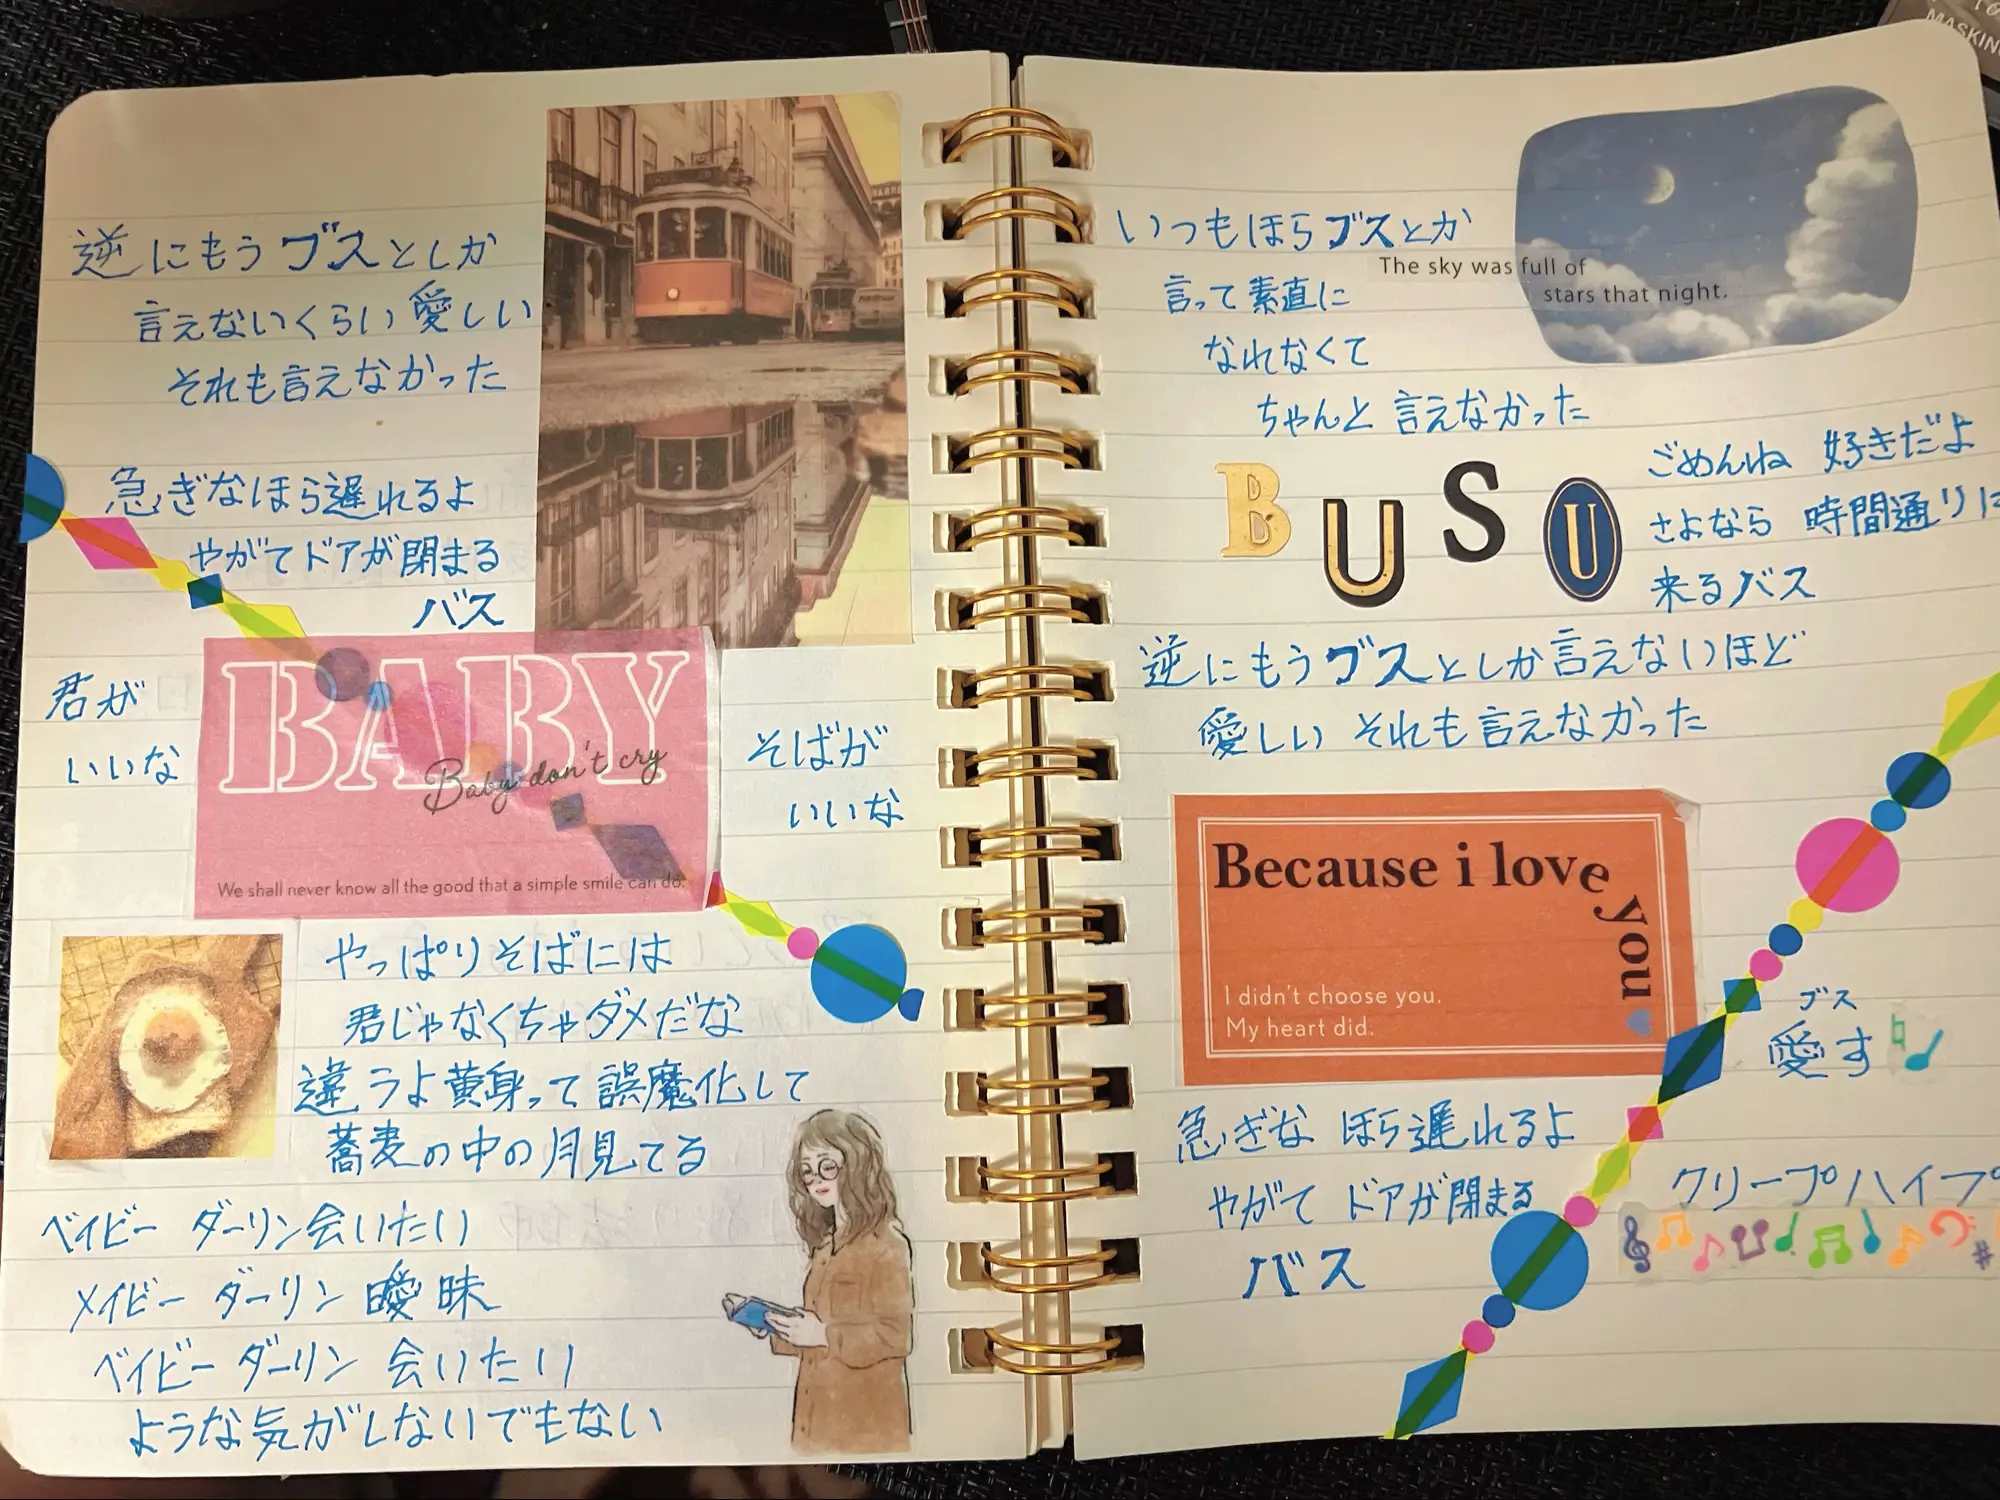 逆にもうブスとしか
言えないくらい愛しい
それも言えなかった
急ぎなほら遅れるよ
やがてドアが閉まる
バス
君が
いいな
BABY
Baby don't cry
We shall never know all the good that a simple smile can do.
そばが
いいな
やっぱりそばには
君じゃなくちゃダメだな
違うよ黄身って誤魔化して
蕎麦の中の月見てる
ベイビー ダーリン会いたい
メイビー ダーリン 曖昧
ベイビー ダーリン 会いたい
ような気がしないでもない
MASKIN
いつもほらブスとか
言って素直に
なれなくて
ちゃんと言えなかった
The sky was full of
stars that night.
BUSU
ごめんね 好きだよ
さよなら 時間通りに
来るバス
逆にもうブスとしか言えないほど
愛しい それも言えなかった
Because i love you
I didn't choose you.
My heart did.
ブス
愛す
急ぎな ほら遅れるよ
やがて ドアが閉まる
バス
クリープハイプ